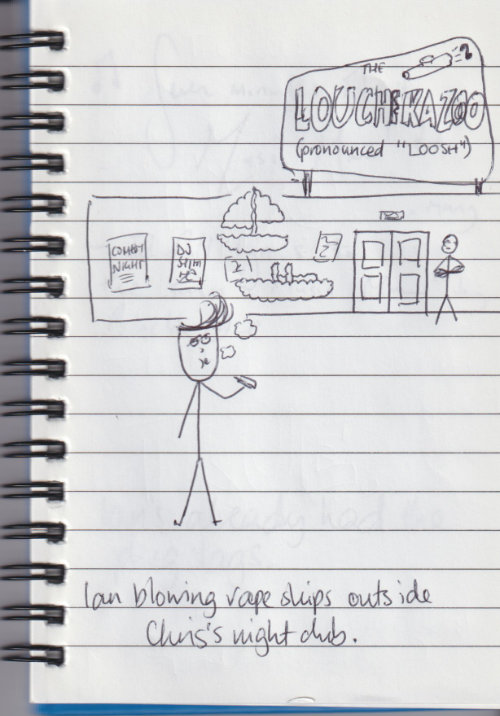 THE
LOUCHE KAZOO
(pronounced "LOOSH")
COMEDY
NIGHT
DJ
Slim
2
Ian blowing vape ships outside
Chris's nightclub.